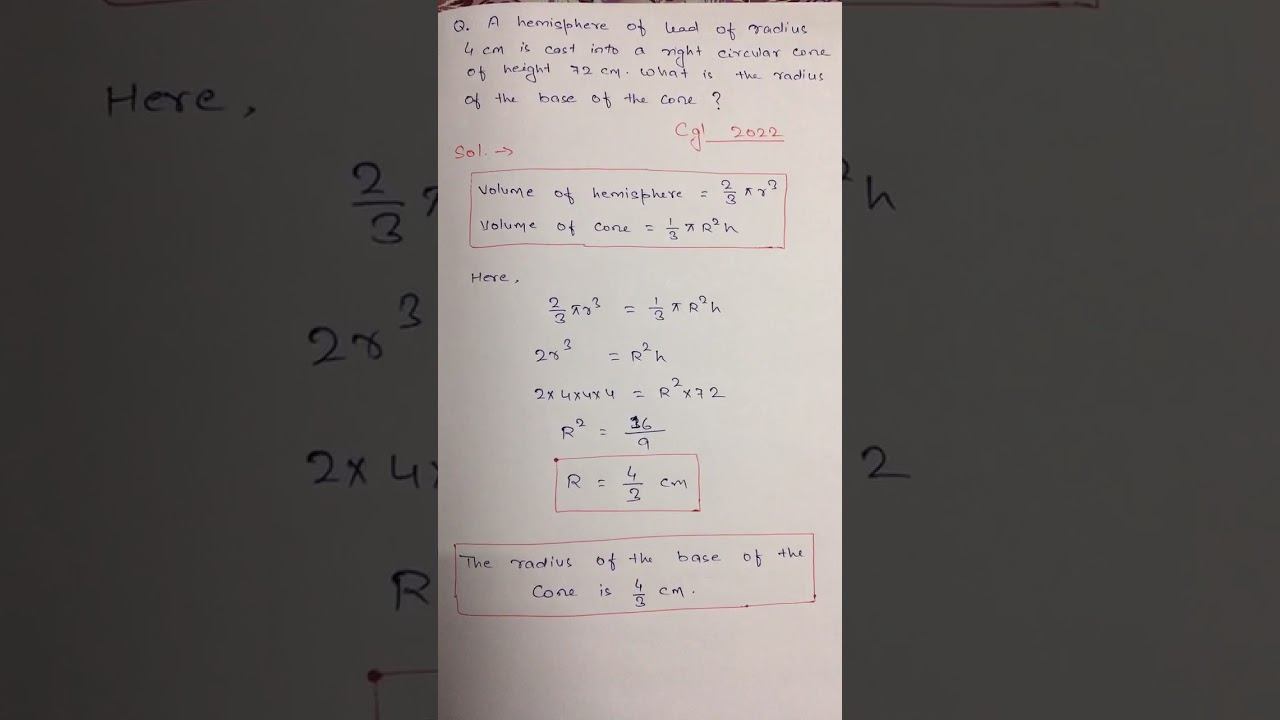 Q. A hemisphere of lead of radius
4 cm is cast into a right circular cone
of height 72 cm. What is the radius
of the base of the cone ?
Cgl 2022
Sol. →
Volume of hemisphere = 2/3 πr³
Volume of cone = 1/3 πR²h
Here,
2/3 πr³ = 1/3 πR²h
2r³ = R²h
2×4×4×4 = R²×72
R² = 16/9
R = 4/3 cm
The radius of the base of the
Cone is 4/3 cm.
Here,
2/3
2r³
2×4
R
²h
2